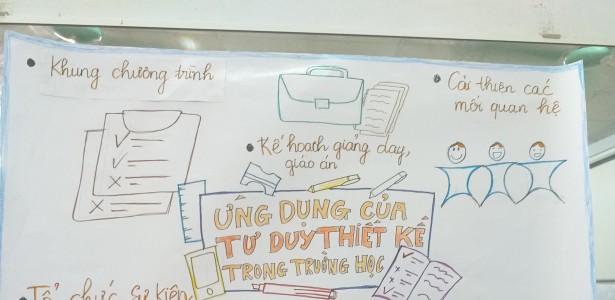 • Khung chương trình
• Cải thiện các
mối quan hệ
• Kế hoạch giảng dạy,
giáo án
ỨNG DỤNG CỦA
TƯ DUY THIẾT KẾ
TRONG TRƯỜNG HỌC
• Tổ chức sự kiện